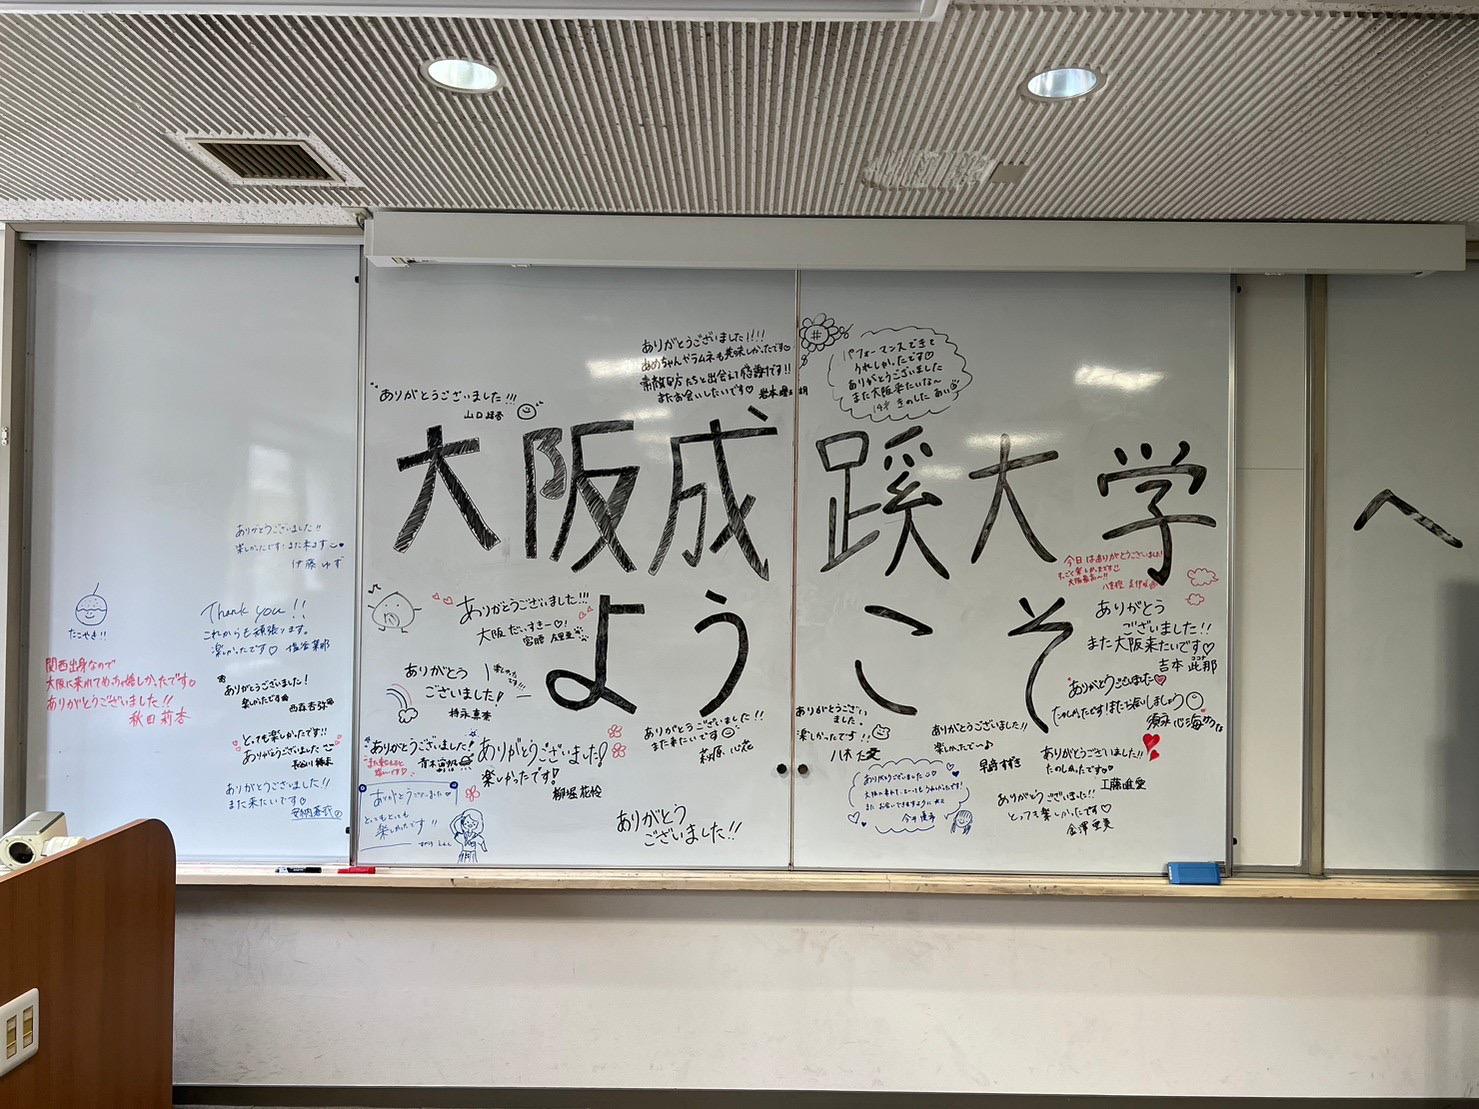 大阪成蹊大学へ
ようこそ
ありがとうございました!!!!
あめちゃんやラムネも美味しかったです♡
素敵な方たちと出会えて感謝です!!
またお会いしたいです♡
パフォーマンスできて
うれしかったです♡
ありがとうございました
また大阪来たいな〜
きのした あい
ありがとうございました!!!
山口
ありがとうございました!!
楽しかったです!また来ます
伊藤ゆず
たこやき!!
Thank you!!
これからも頑張ります。
楽しかったです♡
関西出身なので
大阪に来れてめっちゃ嬉しかったです
ありがとうございました!!
秋田莉杏
ありがとうございました!
楽しかったです
西森杏弥
とっても楽しかったです!!
ありがとうございました
長谷川
ありがとうございました!!
また来たいです♡
ありがとうございました!!!
大阪だいすきー♡!
宮腰
ありがとう
ございました!
楽しかったです!!!
持永真奈
ありがとうございました!
青木宙帆
ありがとうございました!
楽しかったです!
柳堀花怜
ありがとうございました♡
とってもとっても
楽しかったです!!
ありがとうございました!!
また来たいです
萩原心花
ありがとう
ございました!!
ありがとうござい
ました。
楽しかったです!!
八木仁愛
ありがとうございました
また お会いできますように
ありがとうございました!!
楽しかったでーす
ありがとうございました!!
たのしかったです
工藤唯愛
ありがとうございました!!
とっても楽しかったです♡
金澤亜美
今日はありがとうございました!
すごく楽しかったです
大阪最高〜!!
ありがとう
ございました!!
また大阪来たいです♡
吉本此那
ココナ
ありがとうございました
たのしかったです!またお会いしましょう
須永心海